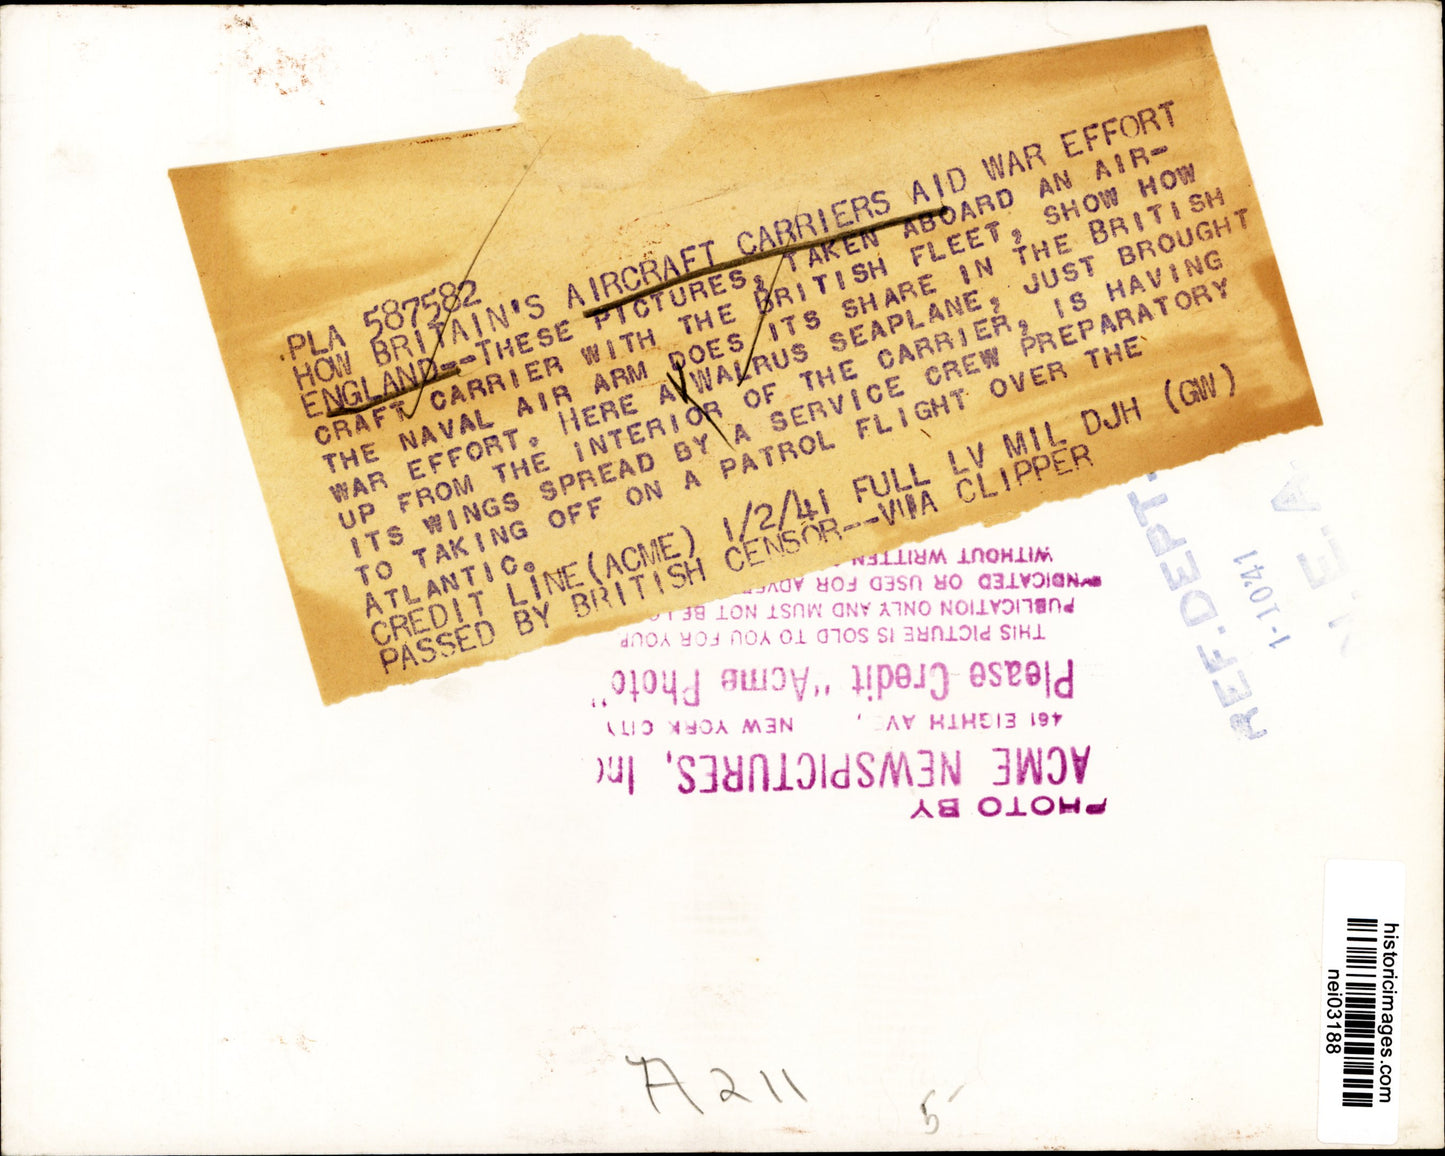 PLA 587582
HOW BRITAIN'S AIRCRAFT CARRIERS AID WAR EFFORT
ENGLAND--THESE PICTURES, TAKEN ABOARD AN AIR-
CRAFT CARRIER WITH THE BRITISH FLEET, SHOW HOW
THE NAVAL AIR ARM DOES ITS SHARE IN THE BRITISH
WAR EFFORT. HERE A WALRUS SEAPLANE, JUST BROUGHT
UP FROM THE INTERIOR OF THE CARRIER, IS HAVING
ITS WINGS SPREAD BY A SERVICE CREW PREPARATORY
TO TAKING OFF ON A PATROL FLIGHT OVER THE
ATLANTIC.
CREDIT LINE (ACME) 1/2/41 FULL LV MIL DJH (GW)
PASSED BY BRITISH CENSOR--VIA CLIPPER
PHOTO BY
ACME NEWSPICTURES, Inc
461 EIGHTH AVE, NEW YORK CITY
Please Credit "Acme Photo"
THIS PICTURE IS SOLD TO YOU FOR YOUR
PUBLICATION ONLY AND MUST NOT BE
SYNDICATED OR USED FOR
WITHOUT WRITTEN
REF. DEPT.
1-1041
N.E.A.
historicimages.com
nei03188
A211
5